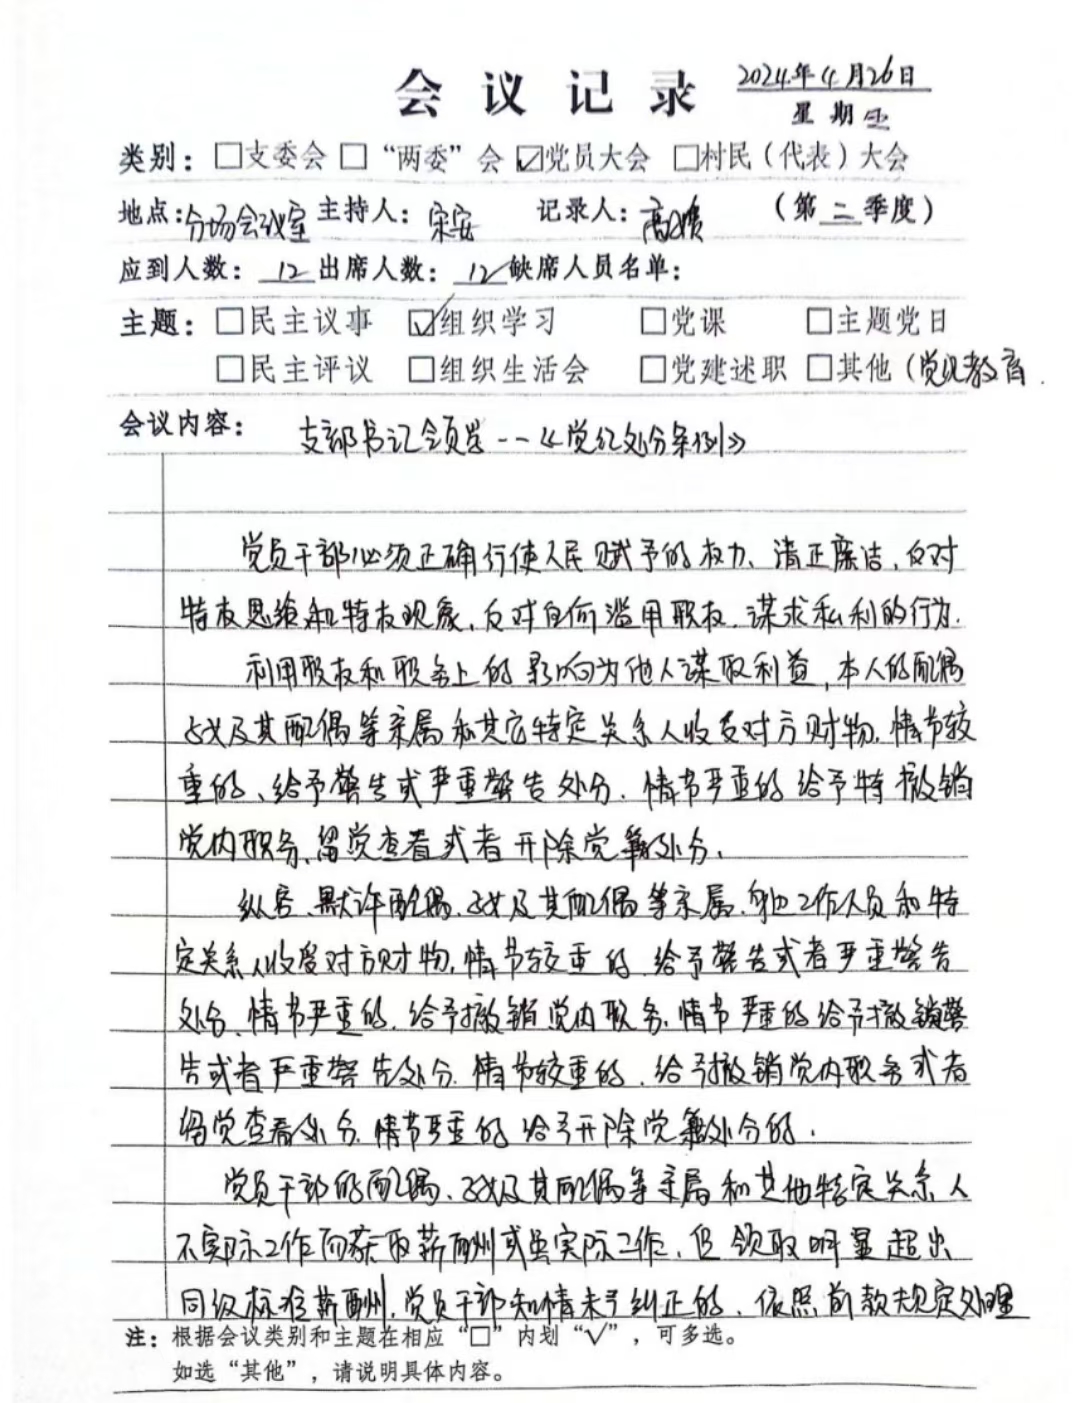 会议记录 2024年4月26日
星期五
类别：□支委会 □“两委”会 ☑党员大会 □村民（代表）大会
地点：分场会议室 主持人：宋安 记录人：高 （第二季度）
应到人数：12 出席人数：12 缺席人员名单：
主题：□民主议事 ☑组织学习 □党课 □主题党日
□民主评议 □组织生活会 □党建述职 □其他（党纪教育
会议内容：支部书记领学--《党纪处分条例》
党员干部必须正确行使人民赋予的权力、清正廉洁，反对
特权思维和特权现象，反对任何滥用职权，谋求私利的行为.
利用职权和职务上的影响为他人谋取利益，本人的配偶
子女及其配偶等亲属和其它特定关系人收受对方财物，情节较
重的、给予警告或严重警告处分，情节严重的给予特撤销
党内职务、留党查看或者开除党籍处分，
纵容、默许配偶、子女及其配偶等亲属、身边工作人员和特
定关系人收受对方财物，情节较重的，给予警告或者严重警告
处分、情节严重的，给予撤销党内职务，情节严重的给予撤销警
告或者严重警告处分，情节较重的，给予撤销党内职务或者
留党查看处分，情节严重的给予开除党籍处分的.
党员干部的配偶、子女及其配偶等亲属和其他特定关系人
不实际工作而获取薪酬或虽实际工作，但领取明显超出
同级标准薪酬，党员干部知情未予纠正的，依照前款规定处理
注：根据会议类别和主题在相应“□”内划“√”，可多选。
如选“其他”，请说明具体内容。